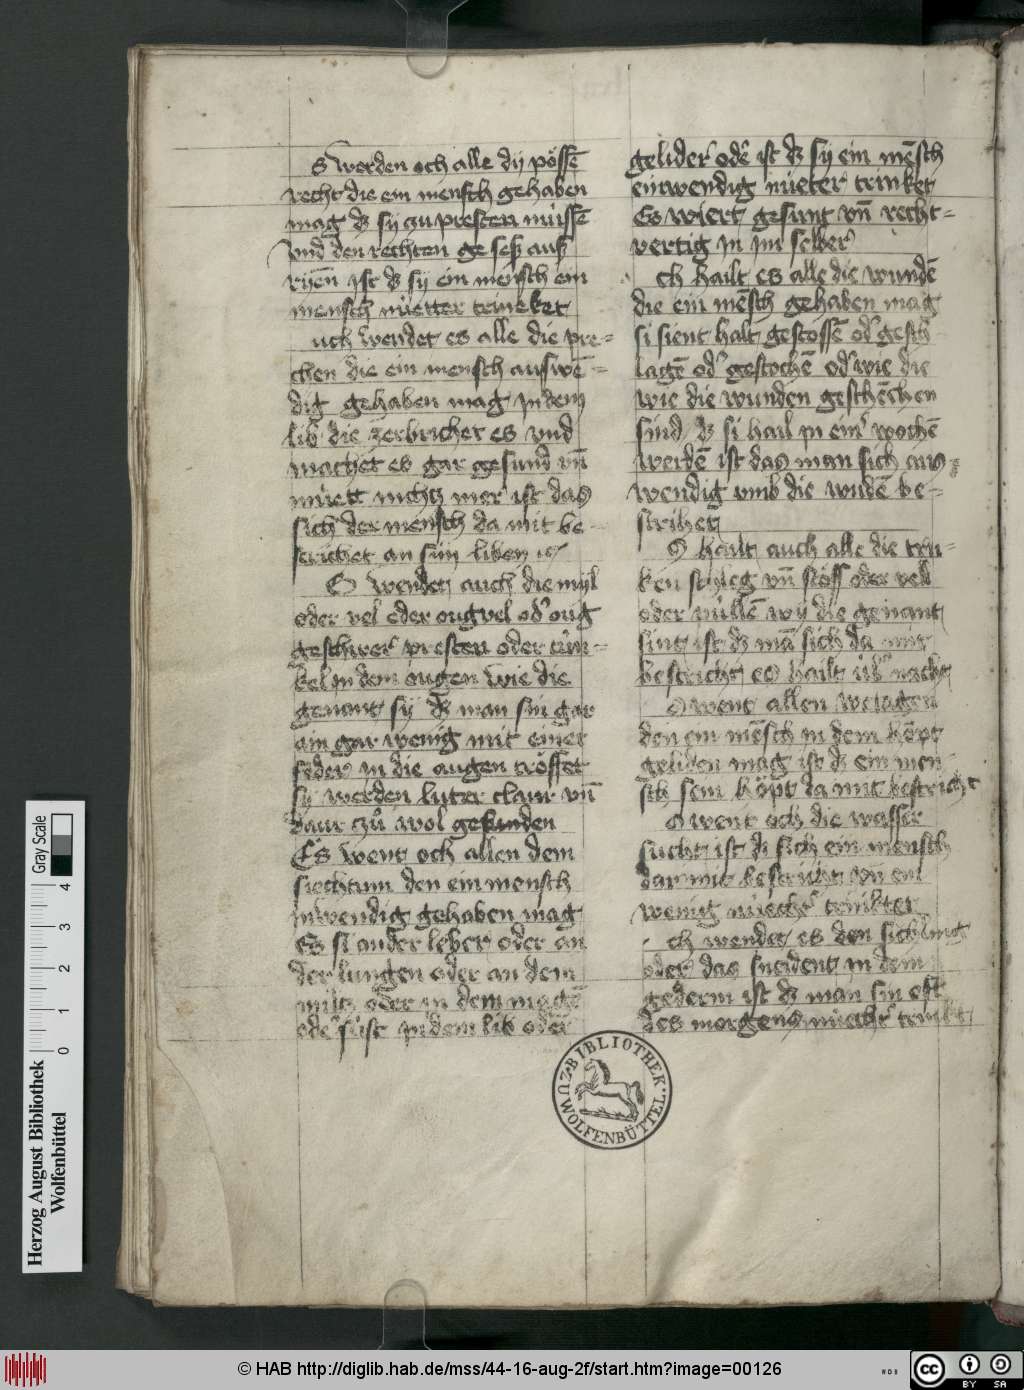 S werden och alle dij pössē
recht die ein mensch gehaben
mag dz sij zu presten müssē
vnd den rechten ge seß auß
rijen ist dz sij ein mensch ein
mensch nüetter trincket
uch wendet es alle die pre=
chen die ein mensch auswē=
dig gehaben mag in dem
lib die zerbrichet es vnd
machet es gar gesund vn̄
nüett nichtz mer ist das
sich der mensch da mit be-
strichet an sim liben
S wendet auch die mijl
oder vel oder ougvel od' oug
geschwer presten oder tün-
kel in dem augen wie die
genant sij dz man sin gar
ain gar wenig mit einer
feder in die augen tröffet
sij werden luter clar vn̄
daur zů wol gesunden
Es went och allen dem
siechtum den ein mensch
inwendig gehaben mag
Es si an der leber oder an
der lungen oder an dem
miltz oder in dem magē
oder süst in dem lib oder
gelider ode ist dz sij ein mēsch
einwendig nüeter trinket
Es wiert gesunt vn̄ recht=
vertig in im selber
ch hailt es alle die wundē
die ein mēsch gehaben mag
si sient halt gestossē od' gesch
lagē od' gestochē od' wie die
wie die wunden geschēchen
sind dz si hail in ein' wochē
werdē ist das man sich aus=
wendig vmb die wūdē be=
strichet
S hailt auch alle die tru=
ken schleg vn̄ stöss oder vell
oder wij die genant
sint ist dz mā sich da mit
bestricht es hailt üb' nacht
S went allen wetagen
den ein mēsch in dem höpt
geliden mag ist dz ein men
sch sein höpt da mit bestricht
S went och die wasser
sucht ist dz sich ein mensch
dar mit bestricht vn ein
wenig nüecht' trinkter
ch wendet es den
oder das sneident in dem
gederm ist dz man sin oft
des morgens nüecht' trinkt
BIBLIOTHEK
ZU WOLFENBÜTTEL
Herzog August Bibliothek
Wolfenbüttel
Gray Scale
0 1 2 3 4
© HAB http://diglib.hab.de/mss/44-16-aug-2f/start.htm?image=00126
cc BY SA